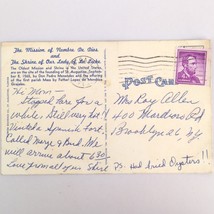 The Mission of Nombre De Dios
and
The Shrine of Our Lady of La Leche
The Oldest Mission and Shrine in the United States,
located on the site of the founding of St. Augustine, Septem-
ber 8, 1565, by Don Pedro Menendez and the offering
of the first parish Mass by Father Lopez de Mendoza
Grajales.
POST CARD
Hi Mom -
Stopped here for a
while. Still very hot!!
Visited a Spanish Fort.
Called Marge & Bud. We
will arrive about 6:30
Love from all of us Shirl
Mrs Ray Allen
400
Brooklyn 26 N.Y.
P.S. Had fried Oysters!!